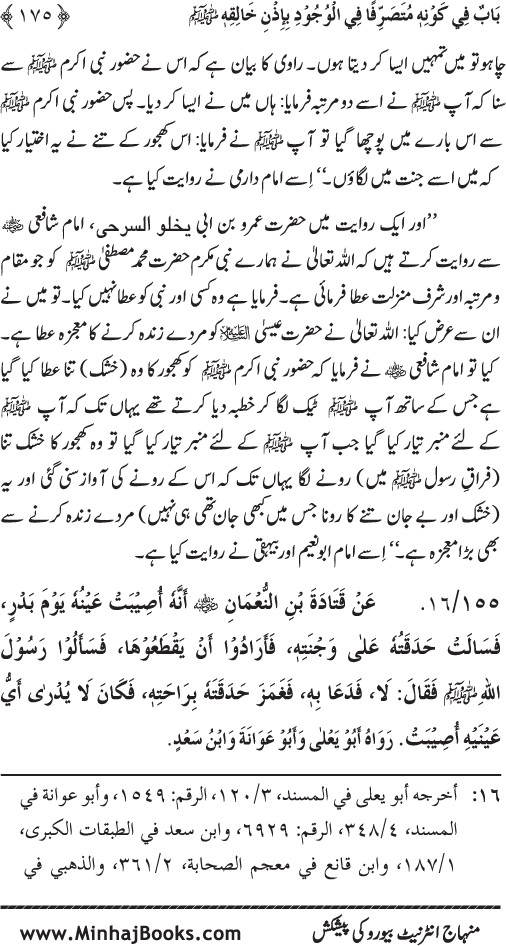 بَابٌ فِي كَوْنِهِ مُتَصَرِّفًا فِي الْوُجُوْدِ بِإِذْنِ خَالِقِهِ ﷺ ﴿ ١٧٥ ﴾
چاہو تو میں تمہیں ایسا کر دیتا ہوں۔ راوی کا بیان ہے کہ اس نے حضور نبی اکرم ﷺ سے
سنا کہ آپ ﷺ نے اسے دو مرتبہ فرمایا: ہاں میں نے ایسا کر دیا۔ پس حضور نبی اکرم ﷺ
سے اس بارے میں پوچھا گیا تو آپ ﷺ نے فرمایا: اس کھجور کے تنے نے یہ اختیار کیا
کہ میں اسے جنت میں لگاؤں۔‘‘ اِسے امام دارمی نے روایت کیا ہے۔
’’اور ایک روایت میں حضرت عمرو بن ابی یخلو السرحی، امام شافعی ﷺ
سے روایت کرتے ہیں کہ اللہ تعالیٰ نے ہمارے نبی مکرم حضرت محمد مصطفیٰ ﷺ کو جو مقام
و مرتبہ اور شرف منزلت عطا فرمائی ہے۔ فرمایا ہے وہ کسی اور نبی کو عطا نہیں کیا۔ تو میں نے
ان سے عرض کیا: اللہ تعالیٰ نے حضرت عیسیٰ علیہ السلام کو مردے زندہ کرنے کا معجزہ عطا ہے۔
کیا تو امام شافعی ﷺ نے فرمایا کہ حضور نبی اکرم ﷺ کو کھجور کا وہ (خشک) تنا عطا کیا گیا
ہے جس کے ساتھ آپ ﷺ ٹیک لگا کر خطبہ دیا کرتے تھے یہاں تک کہ آپ ﷺ
کے لئے منبر تیار کیا گیا جب آپ ﷺ کے لئے منبر تیار کیا گیا تو وہ کھجور کا خشک تنا
(فراقِ رسول ﷺ میں) رونے لگا یہاں تک کہ اس کے رونے کی آواز سنی گئی اور یہ
(خشک اور بے جان تنے کا رونا جس میں کبھی جان تھی ہی نہیں) مردے زندہ کرنے سے
بھی بڑا معجزہ ہے۔‘‘ اِسے امام ابو نعیم اور بیہقی نے روایت کیا ہے۔
١٦/١٥٥. عَنْ قَتَادَةَ بْنِ النُّعْمَانِ ﷺ أَنَّهُ أُصِيْبَتْ عَيْنُهُ يَوْمَ بَدْرٍ،
فَسَالَتْ حَدَقَتُهُ عَلَى وَجْنَتِهِ، فَأَرَادُوْا أَنْ يَقْطَعُوْهَا، فَسَأَلُوْا رَسُوْلَ
اللهِ ﷺ فَقَالَ: لَا، فَدَعَا بِهِ، فَغَمَزَ حَدَقَتَهُ بِرَاحَتِهِ، فَكَانَ لَا يُدْرَى أَيُّ
عَيْنَيْهِ أُصِيْبَتْ. رَوَاهُ أَبُوْ يَعْلَى وَأَبُوْ عَوَانَةَ وَابْنُ سَعْدٍ.
١٦: أخرجه أبو يعلى في المسند، ٣/١٢٠، الرقم: ١٥٤٩، وأبو عوانة في
المسند، ٤/٣٤٨، الرقم: ٦٩٢٩، وابن سعد في الطبقات الكبرى،
١/١٨٧، وابن قانع في معجم الصحابة، ٢/٣٦١، والذهبي في
منہاج انٹرنیٹ بیورو کی پیشکش
www.MinhajBooks.com